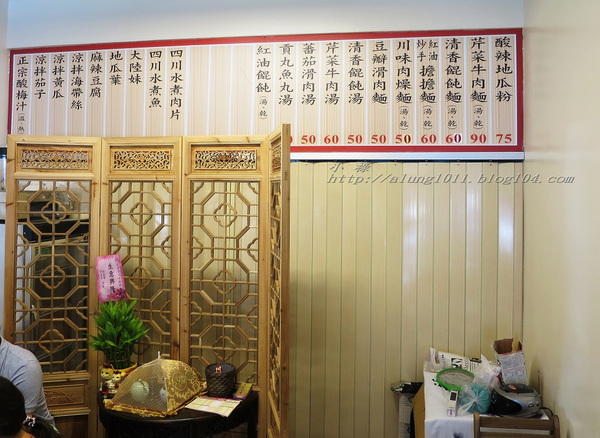 酸辣地瓜粉 75
芹菜牛肉麵(湯、乾) 90
清香餛飩麵(湯、乾) 60
紅油炒手擔擔麵(湯、乾) 60
川味肉燥麵(湯、乾) 50
豆瓣滑肉麵 50
清香餛飩湯 50
芹菜牛肉湯 60
蕃茄滑肉湯 50
貢丸魚丸湯
紅油餛飩(湯、乾)
四川水煮肉片
四川水煮魚
大陸妹
地瓜葉
麻辣豆腐
涼拌海帶絲
涼拌黃瓜
涼拌茄子
正宗酸梅汁(溫、熱)
http://alung1011.blog104.com
生意興